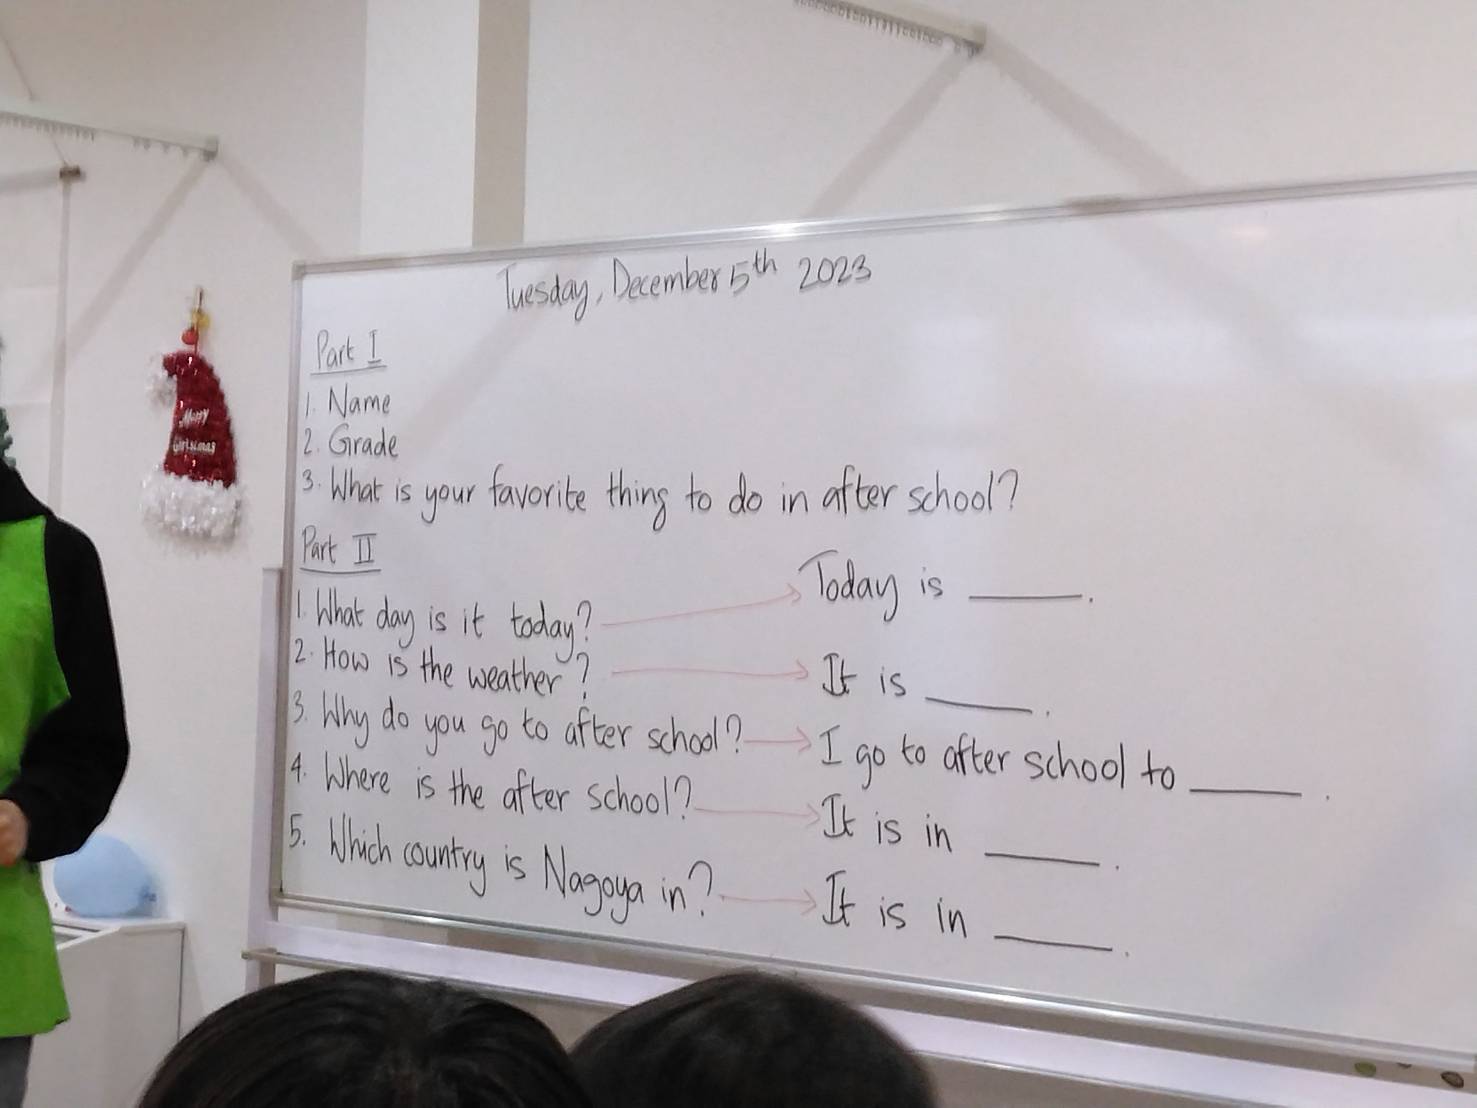 Tuesday, December 5th 2023
Part I
1. Name
2. Grade
3. What is your favorite thing to do in after school?
Part II
1. What day is it today? → Today is ____.
2. How is the weather? → It is ____.
3. Why do you go to after school? → I go to after school to ____.
4. Where is the after school? → It is in ____.
5. Which country is Nagoya in? → It is in ____.
Merry
Christmas